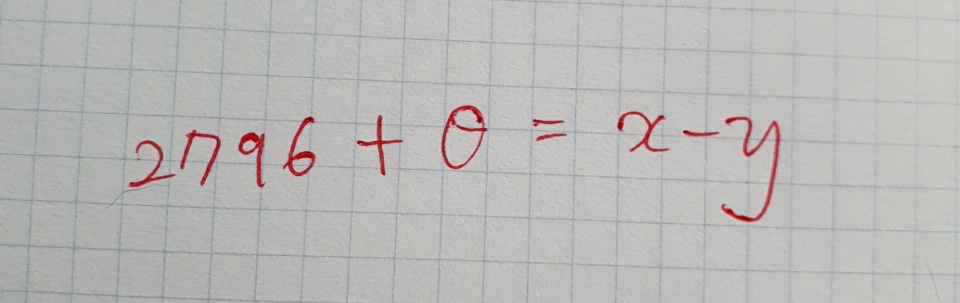 2796 + θ = x - y